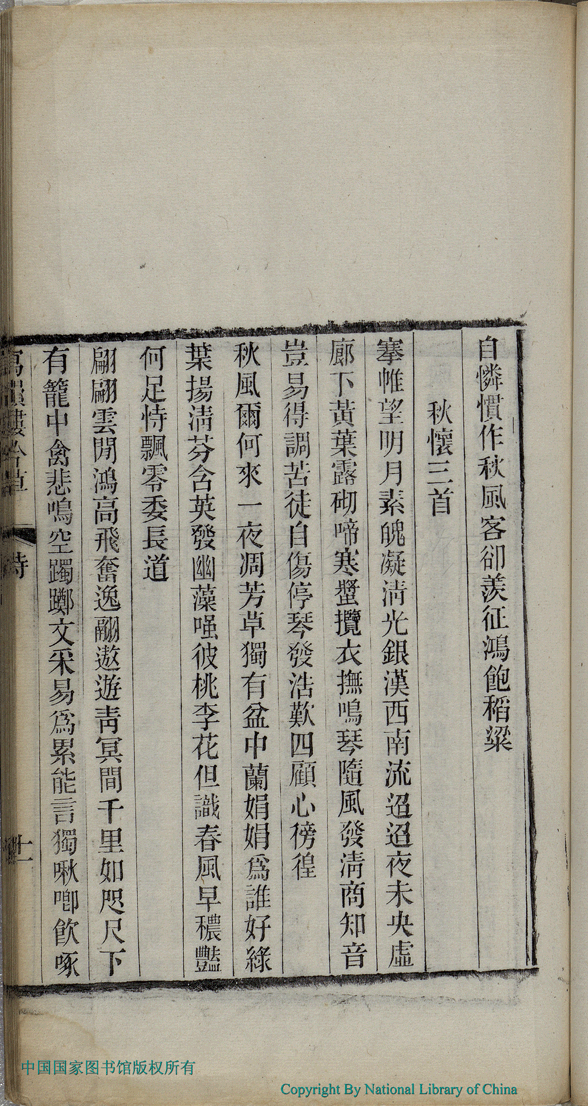 自憐慣作秋風客卻羨征鴻飽稻粱
秋懷三首
搴帷望明月素魄凝清光銀漢西南流迢迢夜未央虛
廊下黃葉露砌啼寒螿攬衣撫鳴琴隨風發清商知音
豈易得調苦徒自傷停琴發浩歎四顧心徬徨
秋風爾何來一夜凋芳草獨有盆中蘭娟娟為誰好綠
葉揚清芬含英發幽藻嗤彼桃李花但識春風早穠豔
何足恃飄零委長道
翩翩雲閒鴻高飛奮逸翮遨遊靑冥間千里如咫尺下
有籠中禽悲鳴空躅躑文采易為累能言獨啾唧飮啄
樓吟草 詩 十一
中国国家图书馆版权所有
Copyright By National Library of China